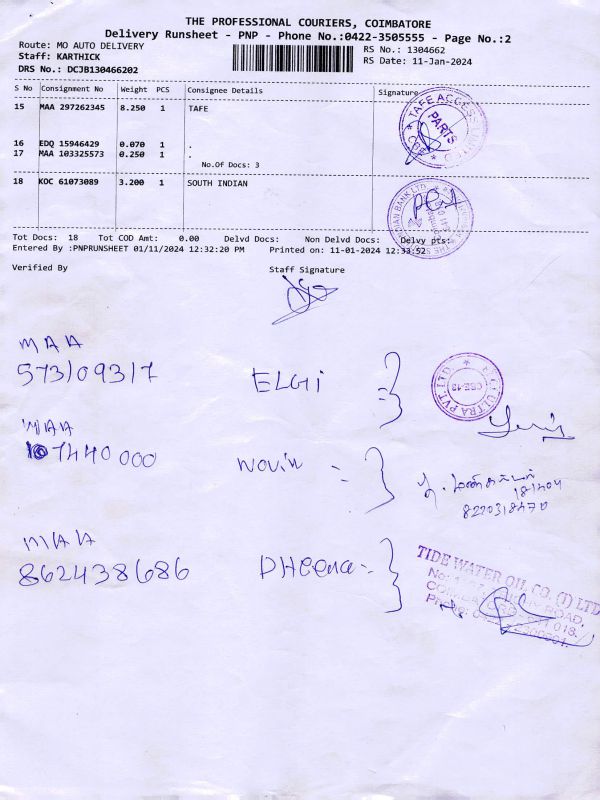 THE PROFESSIONAL COURIERS, COIMBATORE
Delivery Runsheet - PNP - Phone No.:0422-3505555 - Page No.:2
Route: MO AUTO DELIVERY
RS No.: 1304662
Staff: KARTHICK
RS Date: 11-Jan-2024
DRS No.: DCJB130466202
S No Consignment No Weight PCS Consignee Details Signature
15 MAA 297262345 8.250 1 TAFE
TAFE ACCESS
PARTS
16 EDQ 15946429 0.070 1 .
17 MAA 103325573 0.250 1 .
No.Of Docs: 3
18 KOC 61073089 3.200 1 SOUTH INDIAN
BANK LTD
Tot Docs: 18 Tot COD Amt: 0.00 Delvd Docs: Non Delvd Docs: Delvy pts:
Entered By :PNPRUNSHEET 01/11/2024 12:32:20 PM Printed on: 11-01-2024 12:33:52
Verified By Staff Signature
MAA
573109317 ELGi
ULTRA PVT. LTD.
CBE-13
MAA
107440000 Novin
181404
8220318470
MAA
862438686 DHeena
TIDE WATER OIL CO. (I) LTD